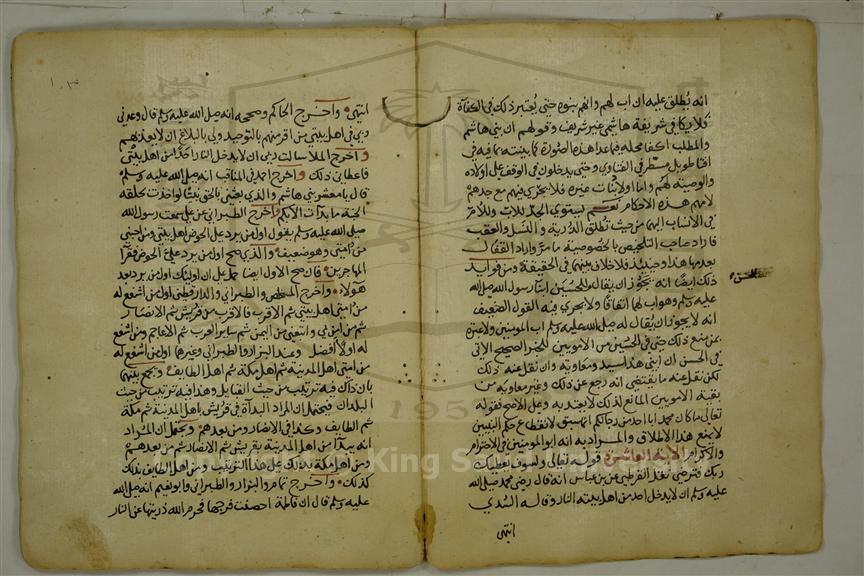 انه يُطلق عليه ان اب لهم وانهم بنوه حتى يُعتبر ذلك فى الكفاة
فلا يكافى شريفة هاشمى غير شريف وقولهم ان بنى هاشم
والمطلب اكفا محله فيما عدا هذه الصورة كما بينته بما فيه فى
افتا طويل مسطر فى الفتاوى وحتى يدخلون فى الوقف على اولاده
والوصية لهم واما اولاد بنات غيره فلا يجرى فيهم مع جدهم
لامهم هذه الاحكام نعم يستوى الجد للاب وللام
فى الانساب اليهما من حيث تطلق الذرية والنسل والعقب
فاراد صاحب التلخيص بالخصوصية ما مر واراد القفال
بعدمها هذا وحينئذ فلا خلاف بينهما فى الحقيقة ومن فوايد
ذلك ايضا انه يجوز ان يقال للحسنين ابنا رسول الله صلى الله
عليه وسلم وهو اب لهما اتفاقا ولا يجرى فيه القول الضعيف
انه لا يجوز ان يُقال له صلى الله عليه وسلم اب المومنين ولا عبرة
بمن منع ذلك حتى فى الحسنين من الامويين للخبر الصحيح الاتى
فى الحسن ان ابنى هذا سيد ومعاوية وان نقل عنه ذلك
لكن نقل عنه ما يقتضى انه رجع عن ذلك وغير معاوية من
بقية الامويين المانع لذلك لا يعتد به وعلى الاصح فقوله
تعالى ما كان محمد ابا احد من رجالكم انما سيق لانقطاع حكم التبنى
لا يمنع هذا الاطلاق والمراد به انه ابو المومنين فى الاحترام
والاكرام الاية العاشرة قوله تعالى ولسوف يعطيك
ربك فترضى نقل القرطبى عن بن عباس انه قال رضى محمد صلى الله
عليه وسلم ان لا يدخل احد من اهل بيته النار وقاله السُدى
انتهى
الحسن
انتهى واخرج الحاكم وصححه انه صلى الله عليه وسلم قال وعدنى
ربى فى اهل بيتى من اقر منهم بالتوحيد ولى بالبلاغ ان لا يعذبهم
واخرج الملا سالت ربى ان لا يدخل النار احدا من اهل بيتى
فاعطانى ذلك واخرج احمد فى المناقب انه صلى الله عليه وسلم
قال يا معشر بنى هاشم والذى بعثنى بالحق نبيا لو اخذت بحلقة
الجنة ما بدات الا بكم واخرج الطبرانى عن على سمعت رسول الله
صلى الله عليه وسلم يقول اول من يرد على الحوض اهل بيتى ومن احبنى
من امتى وهو ضعيف والذى صح اول من يرد على الحوض فقرا
المهاجرين فان صح الاول ايضا حمل على ان اوليك اول من يرد بعد
هؤلاء واخرج المخلص والطبرانى والدارقطنى اول من اشفع له
من امتى اهل بيتى ثم الاقرب فالاقرب من قريش ثم الانصار
ثم من امن بى واتبعنى من اليمن ثم ساير العرب ثم الاعاجم ومن اشفع
له اولا افضل وعند البزار والطبرانى وغيرهما اول من اشفع له
من امتى اهل المدينة ثم اهل مكة ثم اهل الطايف ويجمع بينهما
بان ذاك فيه ترتيب من حيث القبايل وهذا فيه ترتيب من حيث
البلدان فيحتمل ان المراد البداة فى قريش باهل المدينة ثم مكة
ثم الطايف وكذا فى الانصار ومن بعدهم ويحتمل ان المراد
انه يبدا من اهل المدينة بقريش ثم الانصار ثم من بعدهم
ومن اهل مكة بذلك على هذا الترتيب ومن اهل الطايف بذلك
كذلك واخرج تمام والبزار والطبرانى وابو نعيم انه صلى الله
عليه وسلم قال ان فاطمة احصنت فرجها فحرم الله ذريتها عن النار